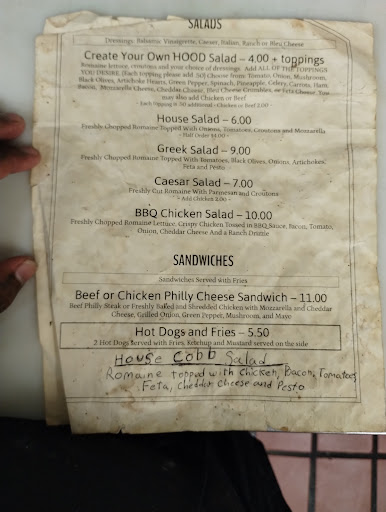 SALADS
Dressings: Balsamic Vinaigrette, Caesar, Italian, Ranch or Bleu Cheese
Create Your Own HOOD Salad – 4.00 + toppings
Romaine lettuce, croutons and your choice of dressings. Add ALL OF THE TOPPINGS
YOU DESIRE (Each topping please add .50) Choose from: Tomato, Onion, Mushroom,
Black Olives, Artichoke Hearts, Green Pepper, Spinach, Pineapple, Celery, Carrots, Ham,
Bacon, Mozzarella Cheese, Cheddar Cheese, Bleu Cheese Crumbles, or Feta Cheese. You
may also add Chicken or Beef
Each Topping is .50 additional - Chicken or Beef 2.00
House Salad – 6.00
Freshly Chopped Romaine Topped With Onions, Tomatoes, Croutons and Mozzarella
- Half Order $4.00 -
Greek Salad – 9.00
Freshly Chopped Romaine Topped With Tomatoes, Black Olives, Onions, Artichokes,
Feta and Pesto
Caesar Salad – 7.00
Freshly Cut Romaine With Parmesan and Croutons
- Add Chicken 2.00 -
BBQ Chicken Salad – 10.00
Freshly Chopped Romaine Lettuce, Crispy Chicken Tossed in BBQ Sauce, Bacon, Tomato,
Onion, Cheddar Cheese And a Ranch Drizzle
SANDWICHES
Sandwiches Served with Fries
Beef or Chicken Philly Cheese Sandwich – 11.00
Beef Philly Steak or Freshly Baked and Shredded Chicken with Mozzarella and Cheddar
Cheese, Grilled Onion, Green Pepper, Mushroom, and Mayo
Hot Dogs and Fries – 5.50
2 Hot Dogs Served with Fries, Ketchup and Mustard served on the side
House Cobb Salad
Romaine topped with Chicken, Bacon, Tomatoes
Feta, Cheddar Cheese and Pesto